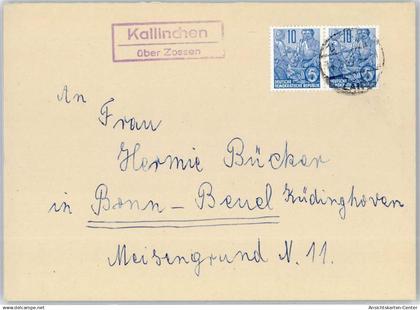 Kallinchen
über Zossen
10 10
DEUTSCHE
DEMOKRATISCHE REPUBLIK
An
Frau
Hermie Bücker
in Bonn-Beuel Küdinghoven
Meisengrund N. 11.
Ansichtskarten-Center